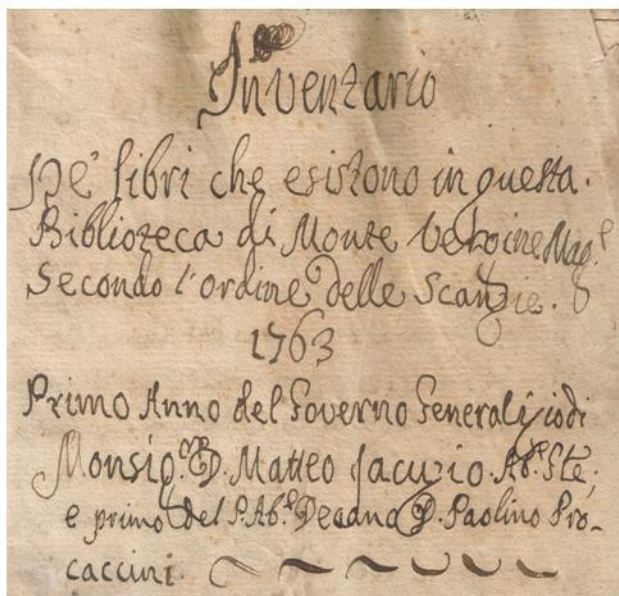 Inventario
Pe' libri che esistono in questa.
Biblioteca di Monte Vergine Mag.e
Secondo l'ordine delle Scanzie.
1763
Primo Anno del Governo Generalizio di
Monsig.r D. Matteo Jacuzio. Ab.e Gle,
e primo del P. Ab.e Decano D. Paolino Pro-
caccini.